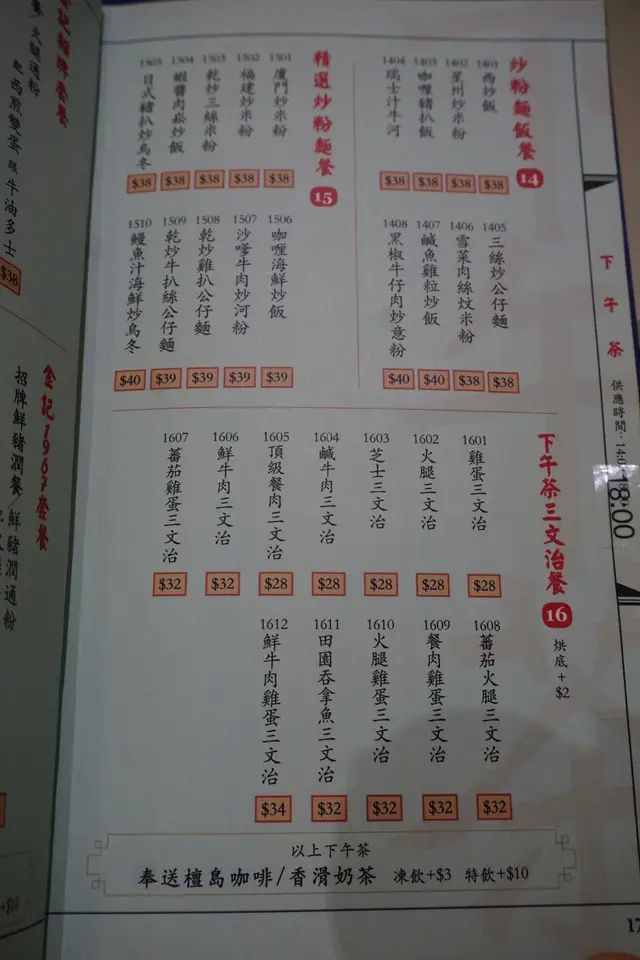 下午茶
供應時間：140
18:00
炒粉麵飯餐
14
1401 西炒飯 $38
1402 星州炒米粉 $38
1403 咖喱豬扒飯 $38
1404 瑞士汁牛河 $38
1405 三絲炒公仔麵 $38
1406 雪菜肉絲炆米粉 $38
1407 鹹魚雞粒炒飯 $40
1408 黑椒牛仔肉炒意粉 $40
精選炒粉麵餐
15
1501 廈門炒米粉 $38
1502 福建炒米粉 $38
1503 乾炒三絲米粉 $38
1504 蝦醬肉崧炒飯 $38
1505 日式豬扒炒烏冬 $38
1506 咖喱海鮮炒飯 $39
1507 沙嗲牛肉炒河粉 $39
1508 乾炒雞扒公仔麵 $39
1509 乾炒牛扒絲公仔麵 $39
1510 鰻魚汁海鮮炒烏冬 $40
下午茶三文治餐
16
烘底+$2
1601 雞蛋三文治 $28
1602 火腿三文治 $28
1603 芝士三文治 $28
1604 鹹牛肉三文治 $28
1605 頂級餐肉三文治 $28
1606 鮮牛肉三文治 $32
1607 蕃茄雞蛋三文治 $32
1608 蕃茄火腿三文治 $32
1609 餐肉雞蛋三文治 $32
1610 火腿雞蛋三文治 $32
1611 田園吞拿魚三文治 $32
1612 鮮牛肉雞蛋三文治 $34
以上下午茶
奉送檀島咖啡/香滑奶茶 凍飲+$3 特飲+$10
17
記招牌套餐
火腿通粉
西煎雙蛋 跟 牛油多士
$38
金記1967套餐
招牌鮮豬潤餐
鮮豬潤通粉
+$10